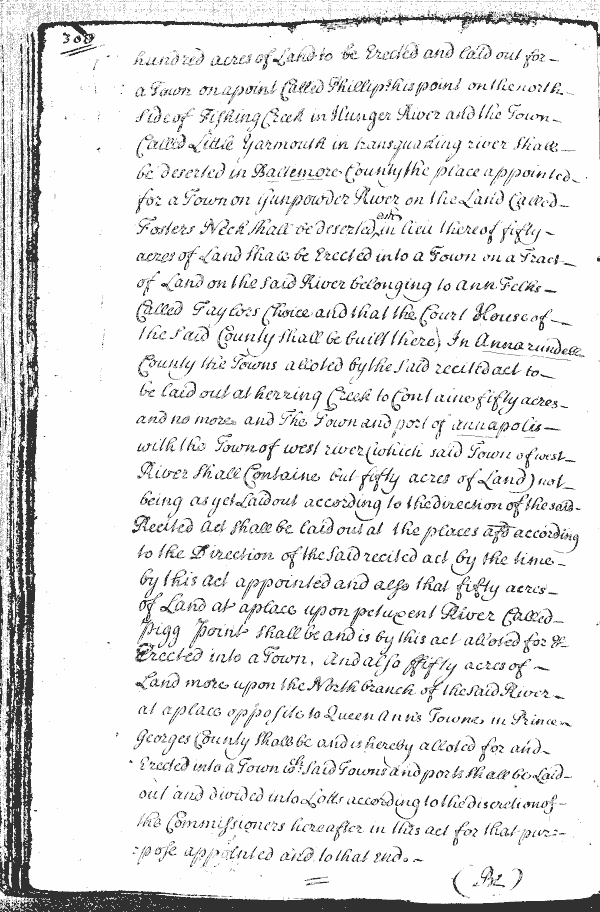 308
hundred acres of Land to be Erected and laid out for
a Town on a point Called Phillips his point on the north
Side of Fishing Creek in Hunger River and the Town
Called Little Yarmouth in transquaking river shall
be deserted in Baltemore County the place appointed
for a Town on Gunpowder River on the Land Called
Fosters Neck shall be deserted, and in lieu thereof fifty
acres of Land shale be Erected into a Town on a Tract
of Land on the said River belonging to Ann Felks
Called Taylors Choice and that the Court House of
the said County shall be built there; In Annarundell
County the Towns alloted by the said recited act to
be laid out at herring Creek to Containe fifty acres
and no more and The Town and port of annapolis
with the Town of west river (which said Town of west
River shall Containe but fifty acres of Land) not
being as yet Laid out according to the direction of the said
Recited act shall be laid out at the places afd according
to the Direction of the said recited act by the time
by this act appointed and also that fifty acres
of Land at a place upon petuxent River Called
Pigg Point shall be and is by this act alloted for &
Erected into a Town, And also ffifty acres of
Land more upon the North branch of the said River
at a place opposite to Queen Anns Towne in Prince
Georges County shall be and is hereby alloted for and
Erected into a Town wch. said Towns and ports shall be Laid
out and divided into Lotts according to the discretion of
the Commissioners hereafter in this act for that pur=
=pose appointed and to that end.
(Be)